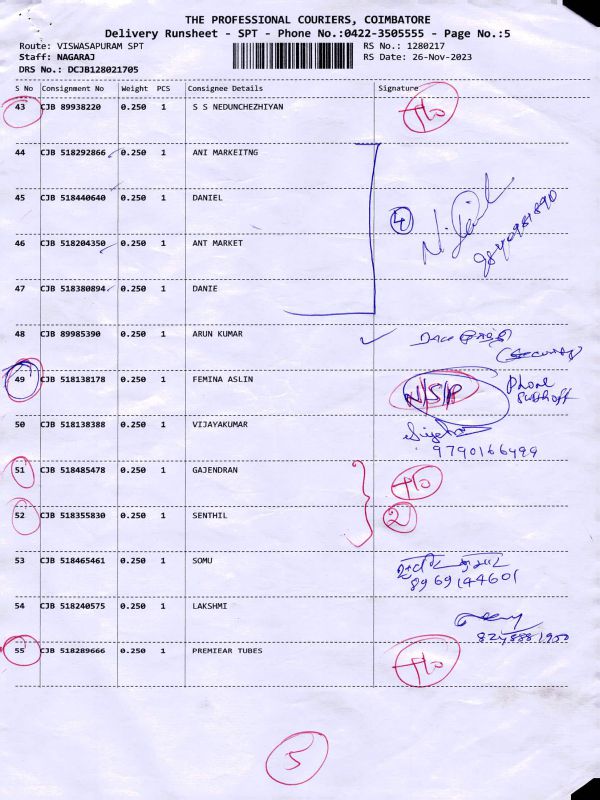 THE PROFESSIONAL COURIERS, COIMBATORE
Delivery Runsheet - SPT - Phone No.:0422-3505555 - Page No.:5
Route: VISWASAPURAM SPT RS No.: 1280217
Staff: NAGARAJ RS Date: 26-Nov-2023
DRS No.: DCJB128021705
S No Consignment No Weight PCS Consignee Details Signature
43 CJB 89938220 0.250 1 S S NEDUNCHEZHIYAN
44 CJB 518292866 0.250 1 ANI MARKEITNG
45 CJB 518440640 0.250 1 DANIEL 4
46 CJB 518204350 0.250 1 ANT MARKET
47 CJB 518380894 0.250 1 DANIE
48 CJB 89985390 0.250 1 ARUN KUMAR
(Security)
49 CJB 518138178 0.250 1 FEMINA ASLIN N/S/P Phone
50 CJB 518138388 0.250 1 VIJAYAKUMAR
9790166499
51 CJB 518485478 0.250 1 GAJENDRAN
52 CJB 518355830 0.250 1 SENTHIL 2
53 CJB 518465461 0.250 1 SOMU
8969144601
54 CJB 518240575 0.250 1 LAKSHMI
55 CJB 518289666 0.250 1 PREMIEAR TUBES
5